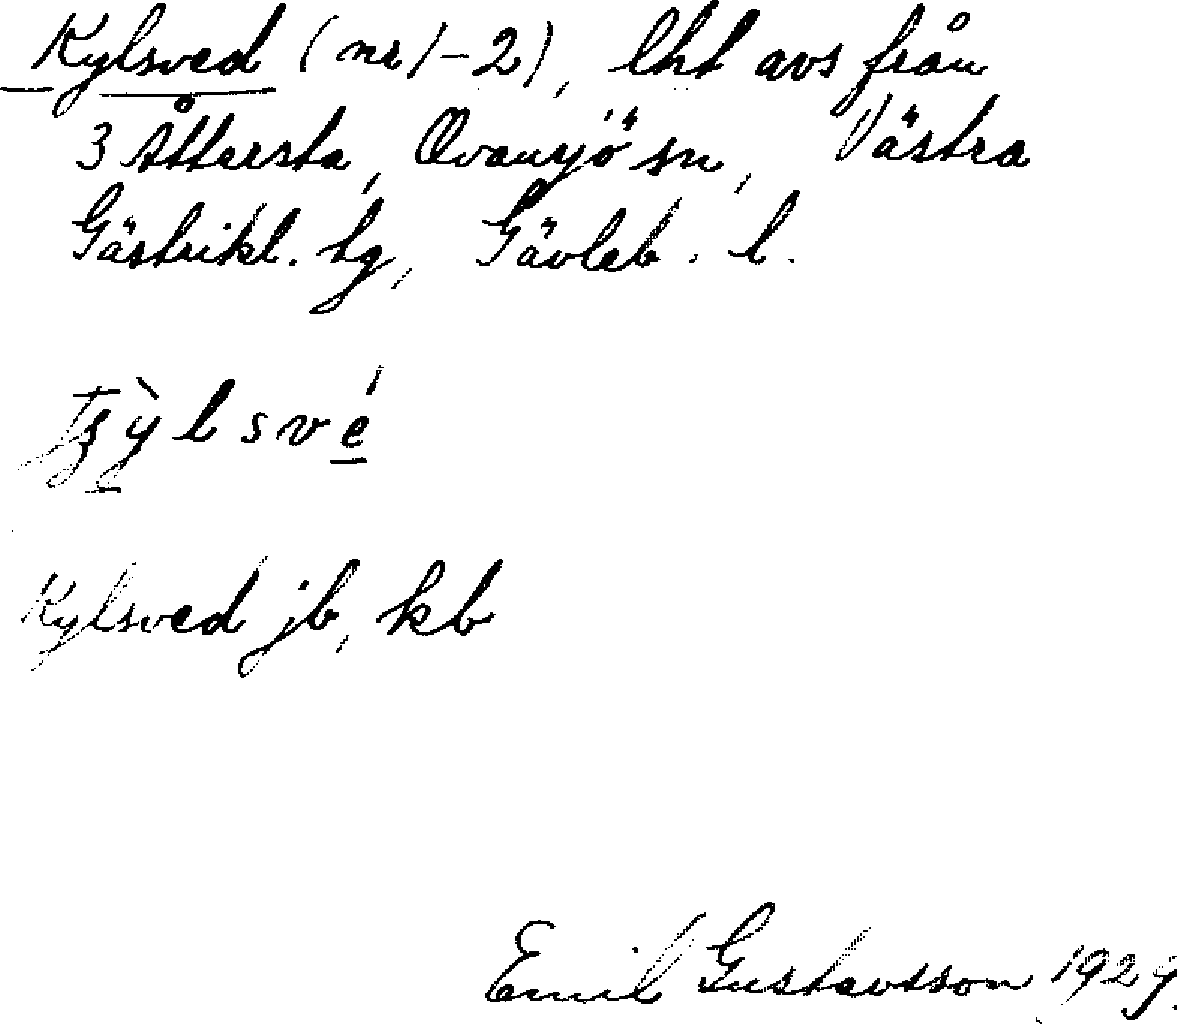 Kylsved (nr 1-2), lht avs från
3 Åttersta, Ovansjö sn, Västra
Gästrikl. tg, Gävleb. l.
ỳlsvé
Kylsved jb, kb
Emil Gustavsson 1929.